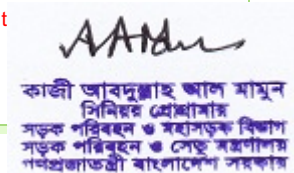 t
কাজী আবদুল্লাহ আল মামুন
সিনিয়র প্রোগ্রামার
সড়ক পরিবহন ও মহাসড়ক বিভাগ
সড়ক পরিবহন ও সেতু মন্ত্রণালয়
গণপ্রজাতন্ত্রী বাংলাদেশ সরকার